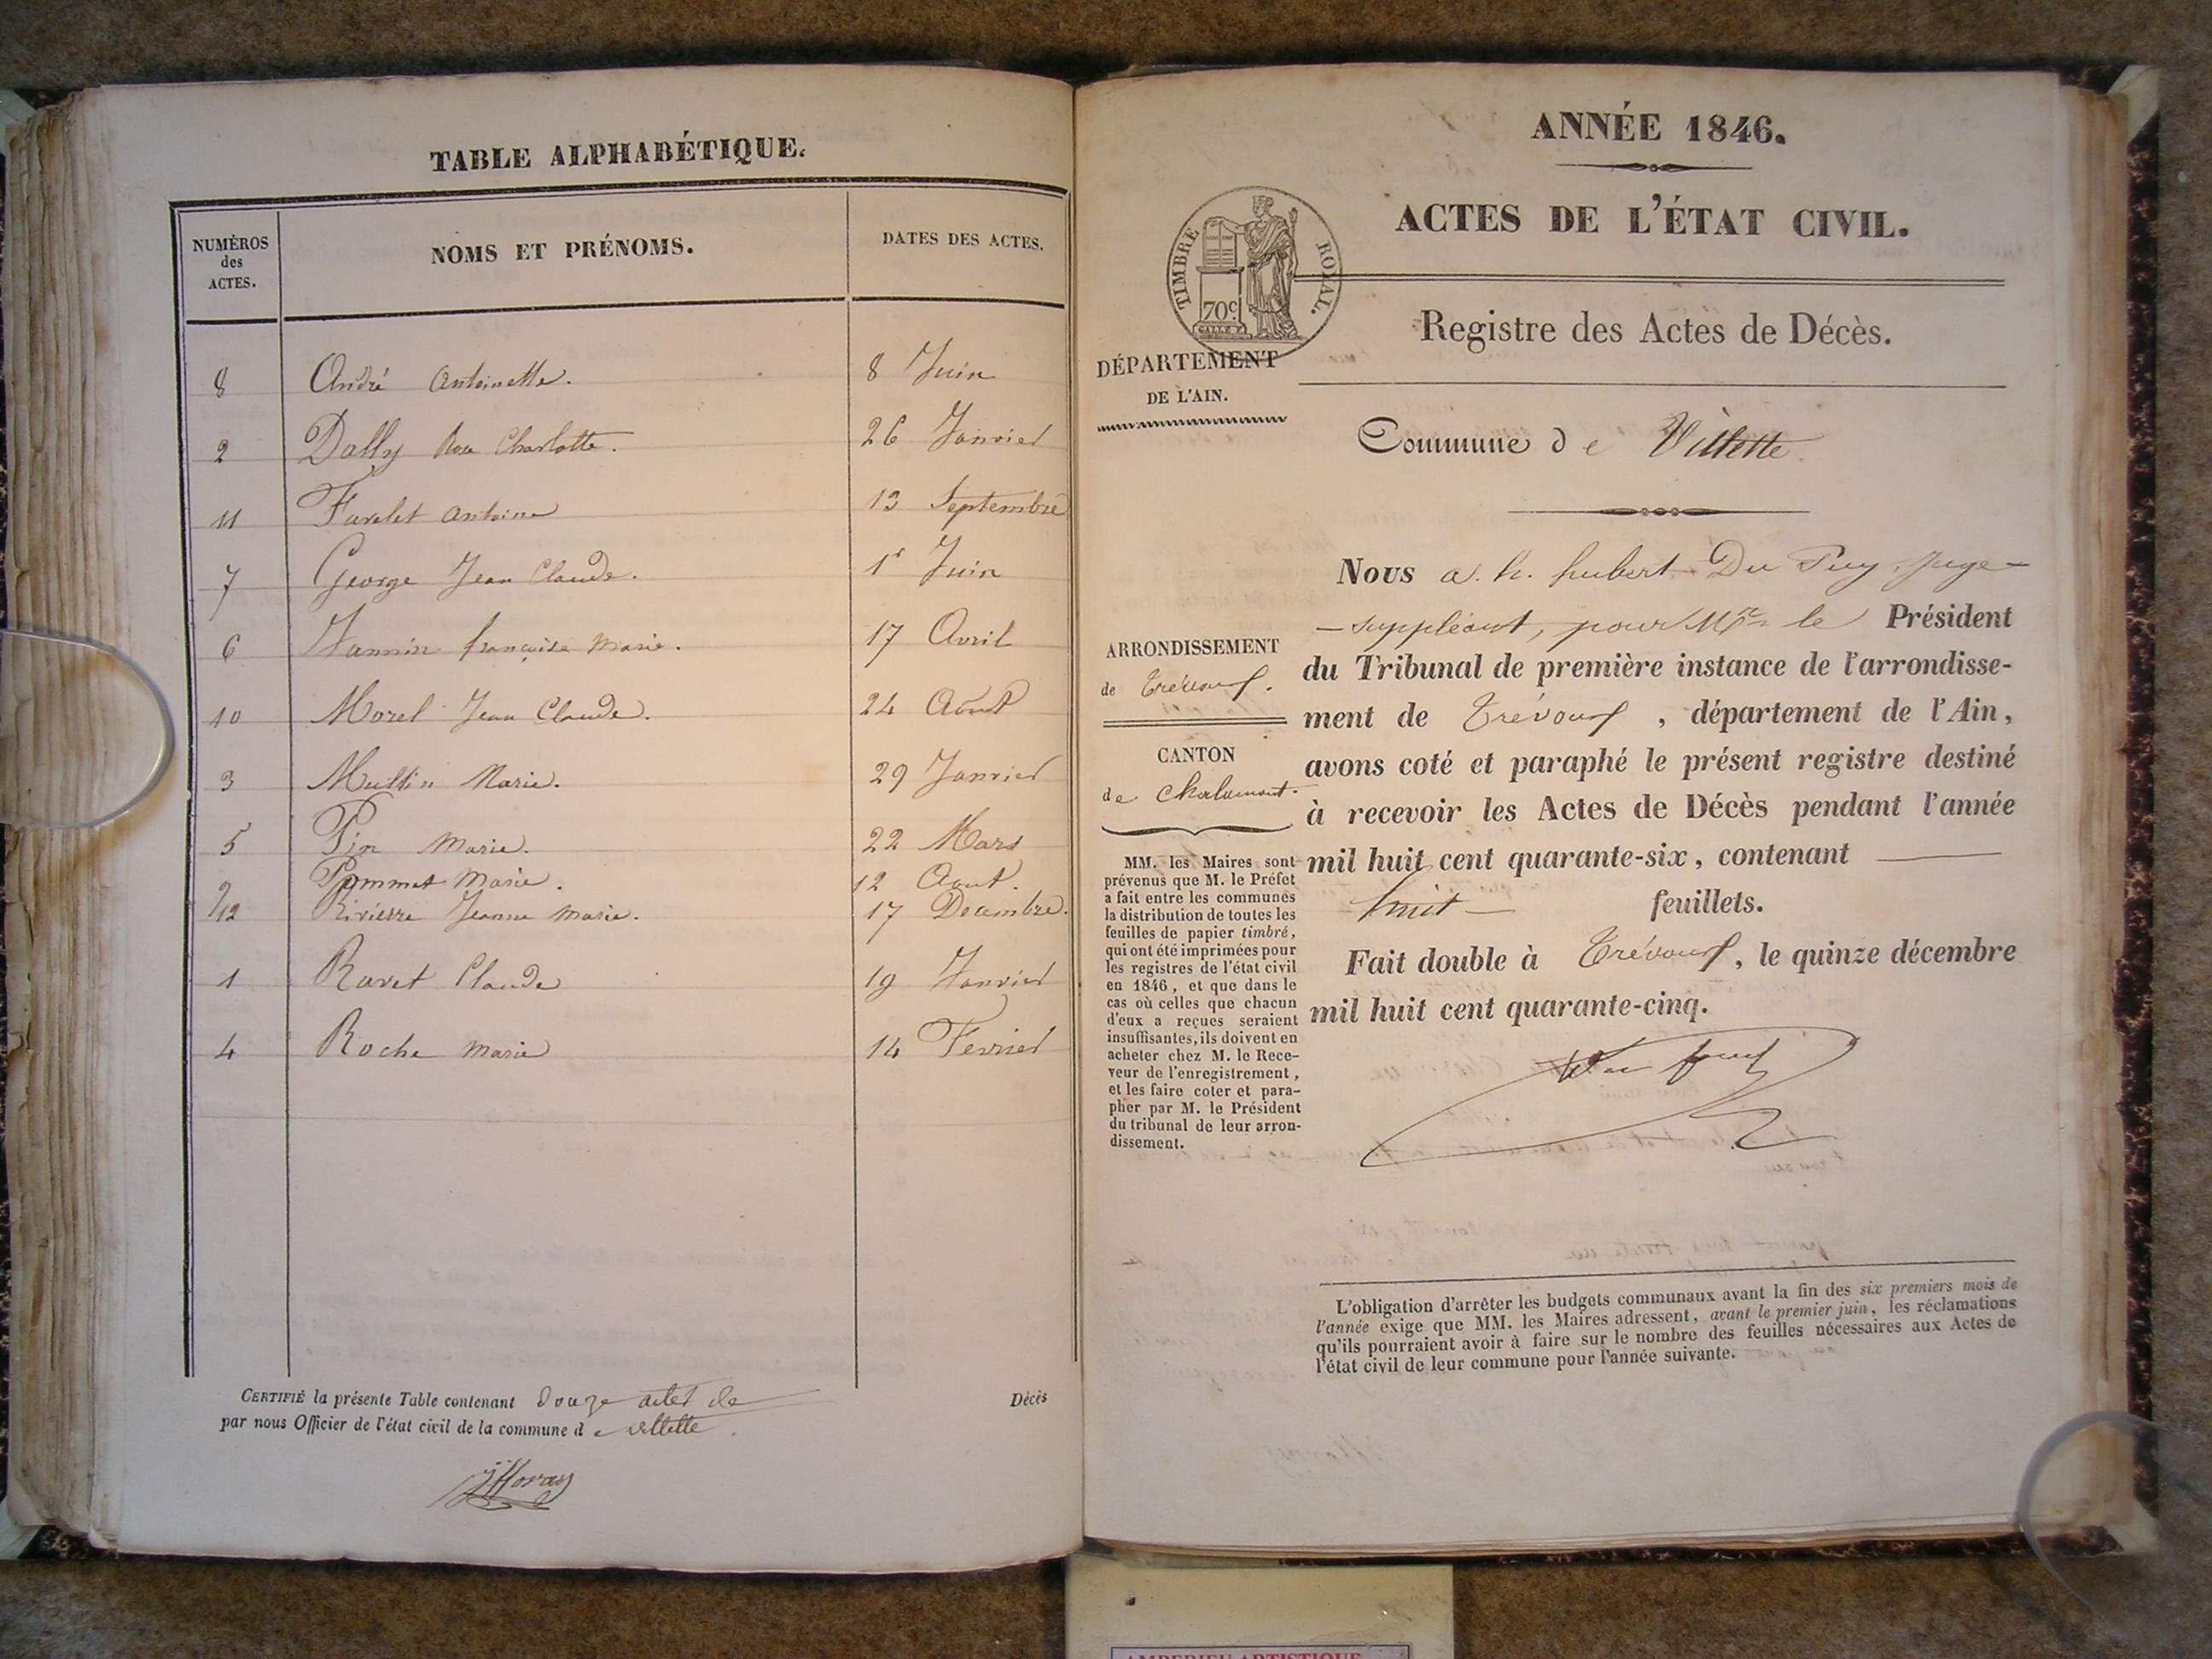 TABLE ALPHABÉTIQUE.
NUMÉROS des ACTES.
NOMS ET PRÉNOMS.
DATES DES ACTES.
8 André Antoinette. 8 Juin
2 Dally Charlotte. 26 Janvier
11 Favelet Antoine 13 Septembre
7 George Jean Claude. 1r Juin
6 Jannin françoise Marie. 17 Avril
10 Morel Jean Claude. 24 Aout
3 Marie. 29 Janvier
5 Pin Marie. 22 Mars
9 Pommet Marie. 12 Aout.
12 Rivierre Jeanne Marie. 17 Decembre.
1 Ravet Claude 19 Janvier
4 Roche Marie 14 Fevrier
CERTIFIÉ la présente Table contenant Douze actes de Décès
par nous Officier de l'état civil de la commune d e villette.
ANNÉE 1846.
ACTES DE L'ÉTAT CIVIL.
TIMBRE ROYAL.
70c
Registre des Actes de Décès.
DÉPARTEMENT
DE L'AIN.
Commune de Villette
Nous a. h. hubert Du Puy, juge-
-suppléant, pour Mr le Président
ARRONDISSEMENT
de Trévoux.
du Tribunal de première instance de l'arrondisse-
ment de Trévoux, département de l'Ain,
CANTON
de Chalamont.
avons coté et paraphé le présent registre destiné
à recevoir les Actes de Décès pendant l'année
mil huit cent quarante-six, contenant
huit feuillets.
Fait double à Trévoux, le quinze décembre
mil huit cent quarante-cinq.
MM. les Maires sont
prévenus que M. le Préfet
a fait entre les communes
la distribution de toutes les
feuilles de papier timbré,
qui ont été imprimées pour
les registres de l'état civil
en 1846, et que dans le
cas où celles que chacun
d'eux a reçues seraient
insuffisantes, ils doivent en
acheter chez M. le Rece-
veur de l'enregistrement,
et les faire coter et para-
pher par M. le Président
du tribunal de leur arron-
dissement.
L'obligation d'arrêter les budgets communaux avant la fin des six premiers mois de
l'année exige que MM. les Maires adressent, avant le premier juin, les réclamations
qu'ils pourraient avoir à faire sur le nombre des feuilles nécessaires aux Actes de
l'état civil de leur commune pour l'année suivante.
AMBERIEU ARTISTIQUE